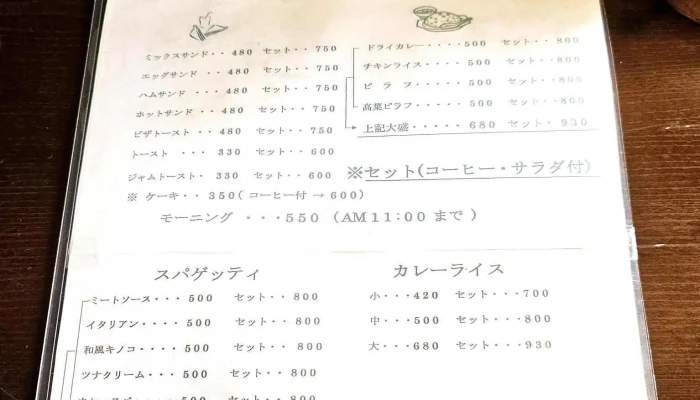 ミックスサンド・・480 セット・・750
エッグサンド・・480 セット・・750
ハムサンド・・・480 セット・・750
ホットサンド・・480 セット・・750
ピザトースト・・480 セット・・750
トースト・・・330 セット・・600
ジャムトースト・330 セット・・600
※ ケーキ・・350(コーヒー付 → 600)
モーニング ・・・550 (AM11:00 まで)
ドライカレー・・・・500 セット・・800
チキンライス・・・・500 セット・・800
ピラフ・・・・・500 セット・・800
高菜ピラフ・・・・・500 セット・・800
上記大盛・・・・・680 セット・930
※セット(コーヒー・サラダ付)
スパゲッティ
ミートソース・・・500 セット・・800
イタリアン・・・・500 セット・・800
和風キノコ・・・・500 セット・・800
ツナクリーム・・・500 セット・・800
500 セット・・800
カレーライス
小・・・420 セット・・・700
中・・・500 セット・・・800
大・・・680 セット・・・930